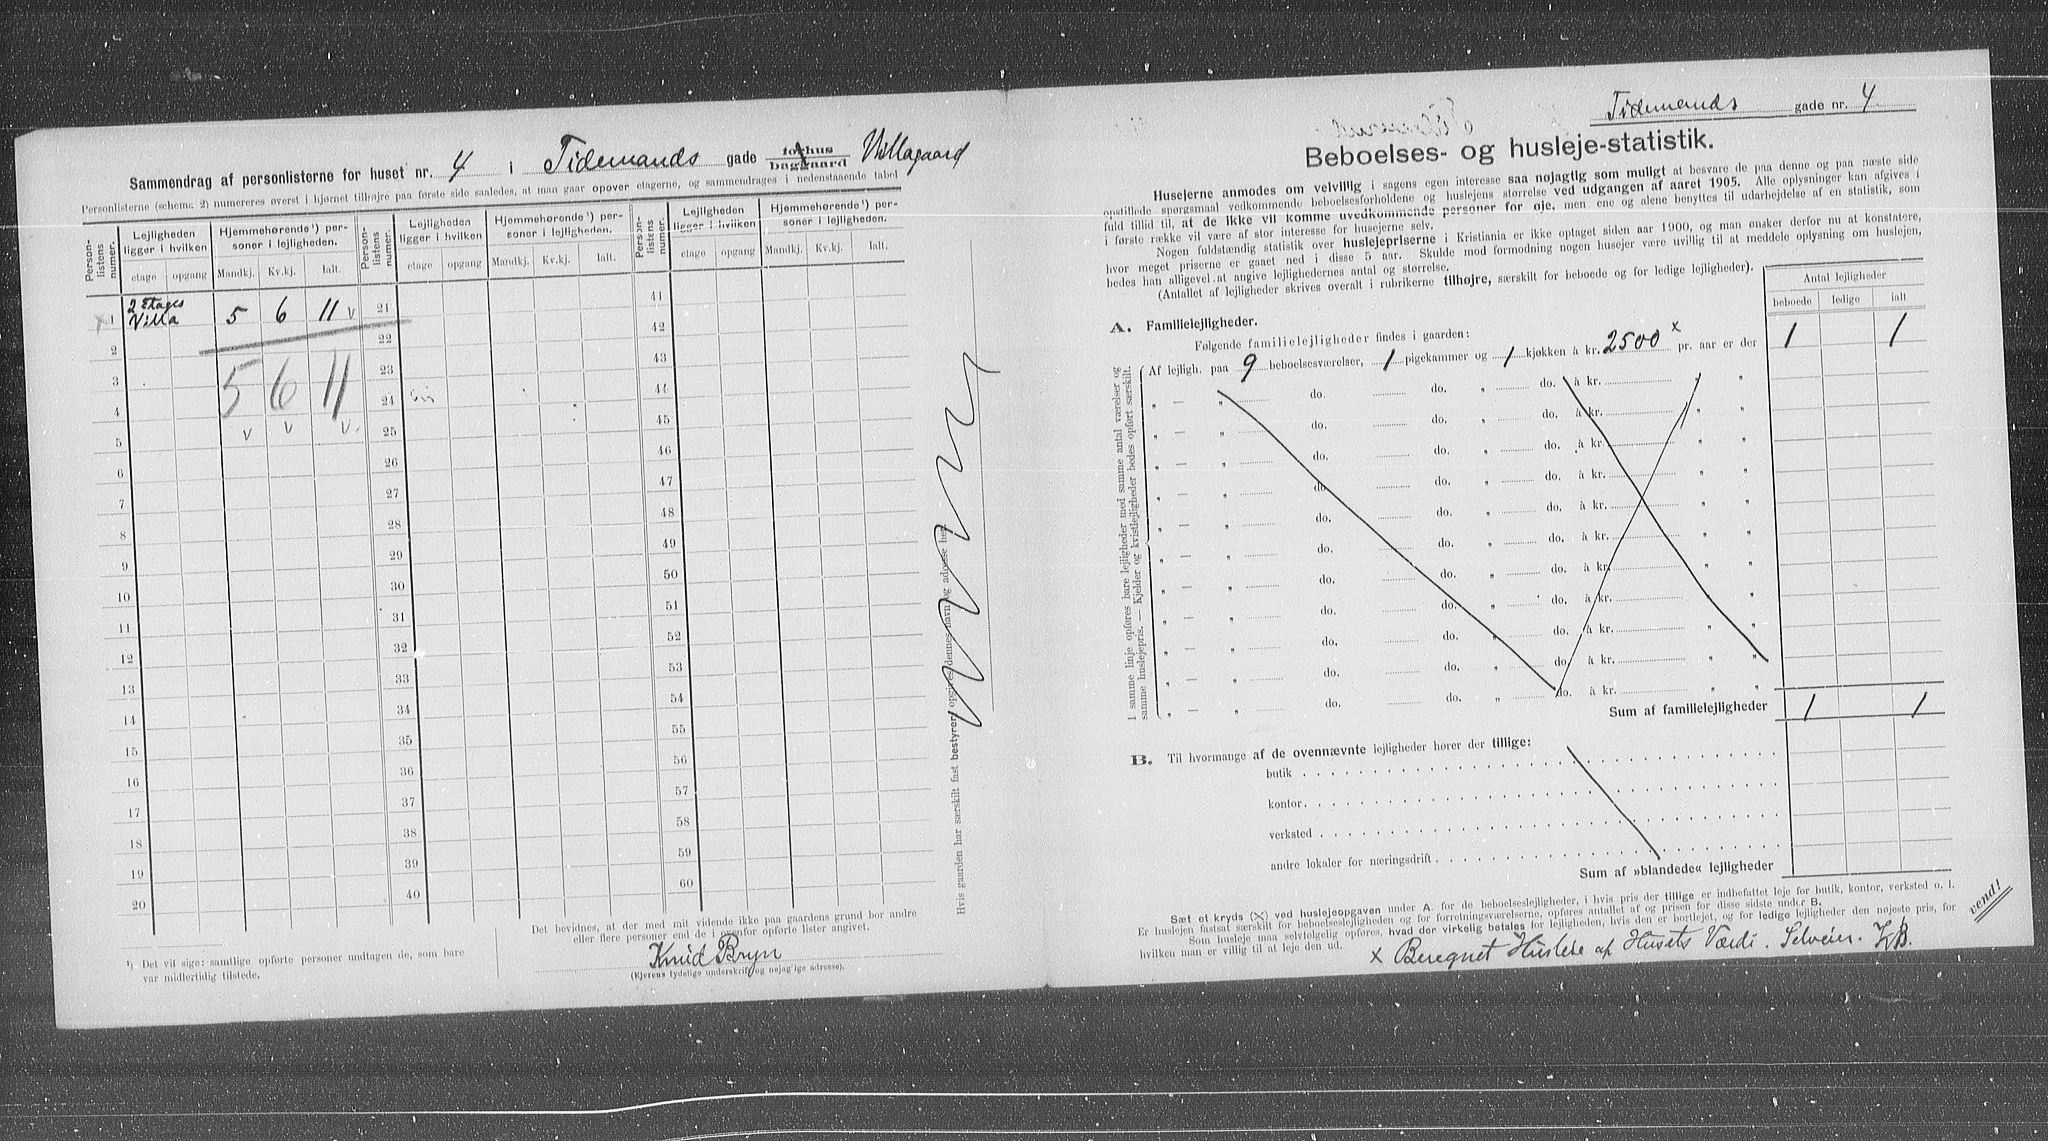 Sammendrag af personlisterne for huset nr. 4 i Tidemands gade forhus baggaard Villagaard
Personlisterne (schema 2) numereres øverst i hjørnet tilhøjre paa første side saaledes, at man gaar opover etagerne, og sammendrages i nedenstaaende tabel
Person-listens numer. Lejligheden ligger i hvilken Hjemmehørende¹) personer i lejligheden. Person-listens numer. Lejligheden ligger i hvilken Hjemmehørende¹) personer i lejligheden. Person-listens numer. Lejligheden ligger i hvilken Hjemmehørende¹) personer i lejligheden.
etage opgang Mandkj. Kv.kj. Ialt. etage opgang Mandkj. Kv.kj. Ialt. etage opgang Mandkj. Kv.kj. Ialt.
x 1 2 Etages Villa 5 6 11 v 21 41
2 22 42
3 5 6 11 23 43
4 v v v. 24 44
5 25 45
6 26 46
7 27 47
8 28 48
9 29 49
10 30 50
11 31 51
12 32 52
13 33 53
14 34 54
15 35 55
16 36 56
17 37 57
18 38 58
19 39 59
20 40 60
Hvis gaarden har særskilt fast bestyrer, opgives dennes navn og adresse her
¹) Det vil sige: samtlige opførte personer undtagen de, som bare
var midlertidig tilstede.
Det bevidnes, at der med mit vidende ikke paa gaardens grund bor andre
eller flere personer end de i ovenfor opførte lister angivet.
Knud Bryn
(Ejerens tydelige underskrift og nøjagtige adresse).
Tidemands gade nr. 4
Beboelses- og husleje-statistik.
Husejerne anmodes om velvillig i sagens egen interesse saa nøjagtig som muligt at besvare de paa denne og paa næste side
opstillede spørgsmaal vedkommende beboelsesforholdene og huslejens størrelse ved udgangen af aaret 1905. Alle oplysninger kan afgives i
fuld tillid til, at de ikke vil komme uvedkommende personer for øje, men ene og alene benyttes til udarbejdelse af en statistik, som
i første række vil være af stor interesse for husejerne selv.
Nogen fuldstændig statistik over huslejepriserne i Kristiania er ikke optaget siden aar 1900, og man ønsker derfor nu at konstatere,
hvor meget priserne er gaaet ned i disse 5 aar. Skulde mod formodning nogen husejer være uvillig til at meddele oplysning om huslejen,
bedes han alligevel at angive lejlighedernes antal og størrelse.
(Antallet af lejligheder skrives overalt i rubrikerne tilhøjre, særskilt for beboede og for ledige lejligheder).
Antal lejligheder
beboede ledige ialt
A. Familielejligheder.
Følgende familielejligheder findes i gaarden:
Af lejligh. paa 9 beboelsesværelser, 1 pigekammer og 1 kjøkken à kr. 2500 x pr. aar er der 1 1
„ — „ do. do. „ do. à kr. „ „
„ — „ do. do. „ do. à kr. „ „
„ — „ do. do. „ do. à kr. „ „
„ — „ do. do. „ do. à kr. „ „
„ — „ do. do. „ do. à kr. „ „
„ — „ do. do. „ do. à kr. „ „
„ — „ do. do. „ do. à kr. „ „
„ — „ do. do. „ do. à kr. „ „
„ — „ do. do. „ do. à kr. „ „
„ — „ do. do. „ do. à kr. „ „
„ — „ do. do. „ do. à kr. „ „
I samme linje opføres bare lejligheder med samme antal værelser og
samme huslejepris. — Kjelder og kvistlejligheder bedes opført særskilt.
Sum af familielejligheder 1 1
B. Til hvormange af de ovennævnte lejligheder hører der tillige:
butik
kontor
verksted
andre lokaler for næringsdrift
Sum af »blandede« lejligheder
Sæt et kryds (X) ved huslejeopgaven under A. for de beboelseslejligheder, i hvis pris der tillige er indbefattet leje for butik, kontor, verksted o. l.
Er huslejen fastsat særskilt for beboelseslejligheden og for forretningsværelserne, opføres antallet af og prisen for disse sidste under B.
Som husleje maa selvfølgelig opføres, hvad der virkelig betales for lejligheden, hvis den er bortlejet, og for ledige lejligheder den nøjeste pris, for
hvilken man er villig til at leje den ud.
vend!
x Beregnet Husleie af Husets Værdi. Selveier. KB.